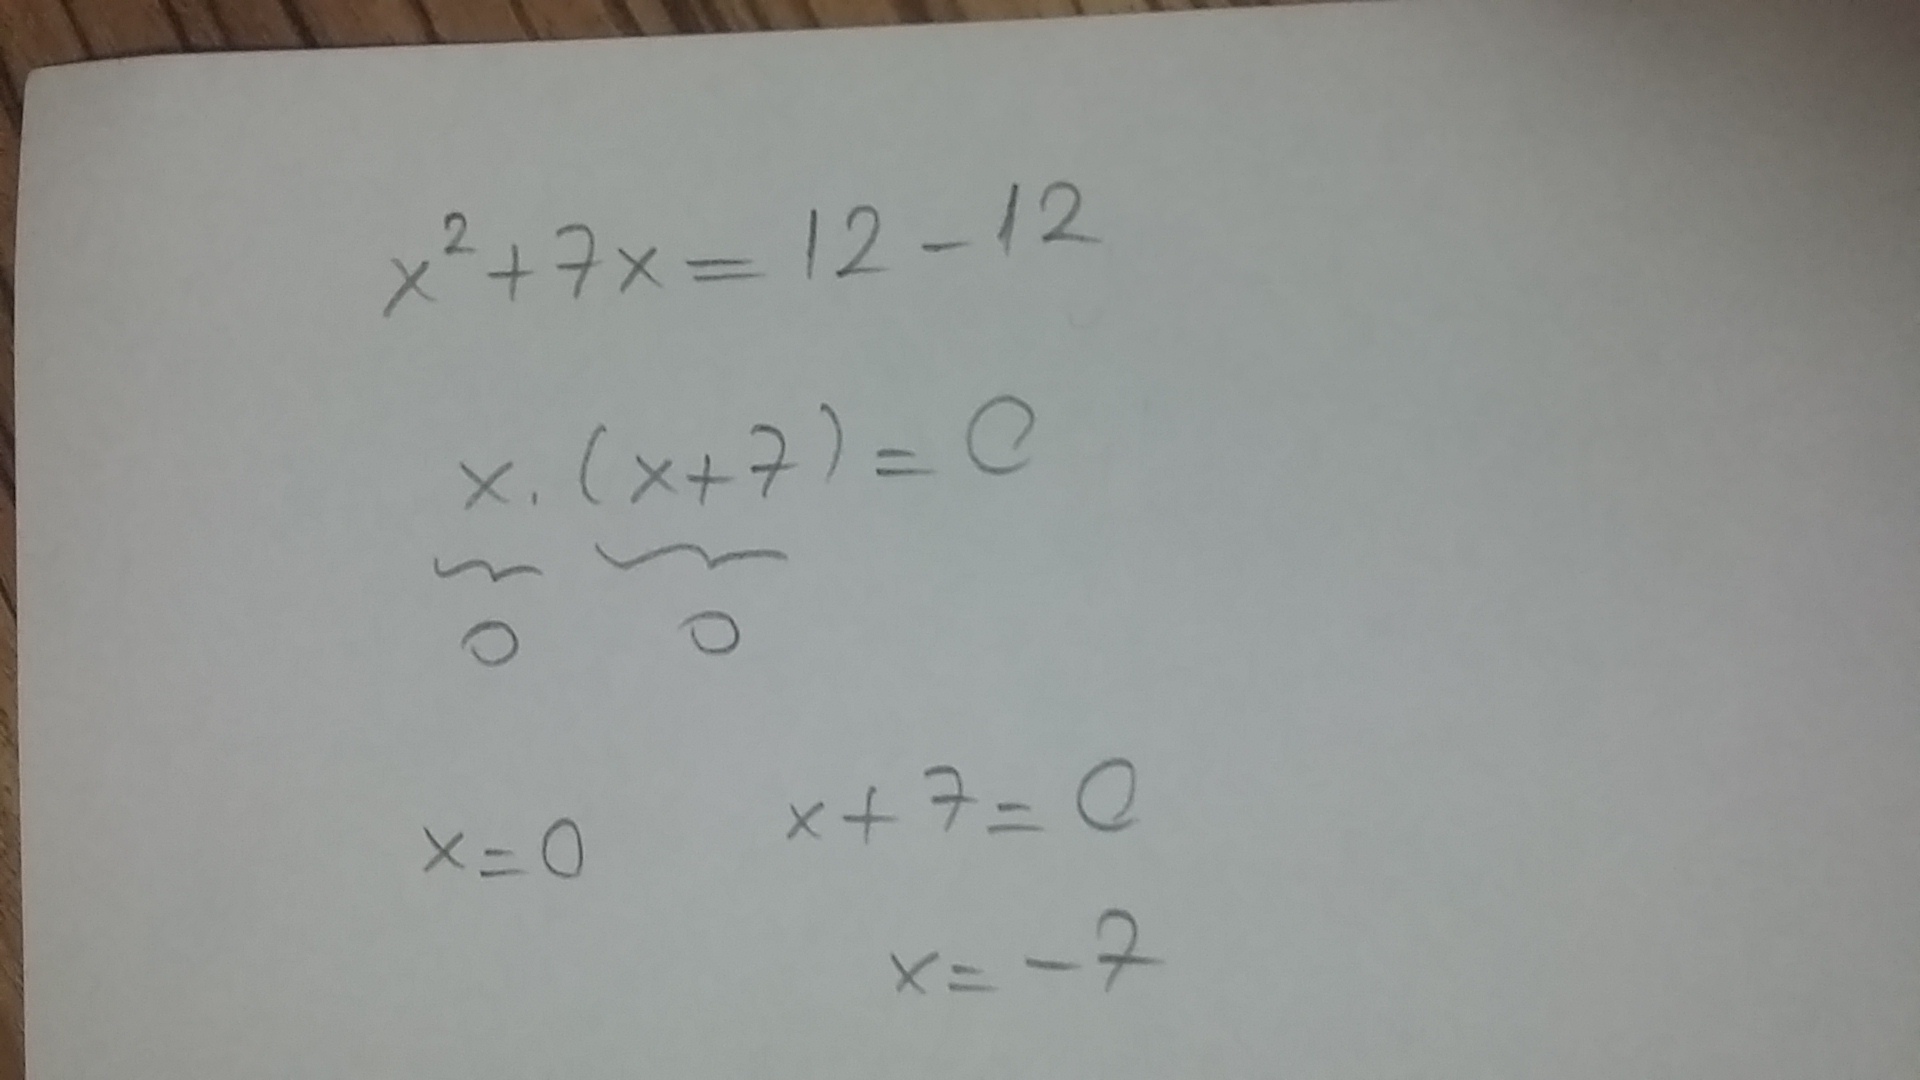 x²+7x=12-12
x.(x+7)=0
0 0
x=0 x+7=0
x=-7